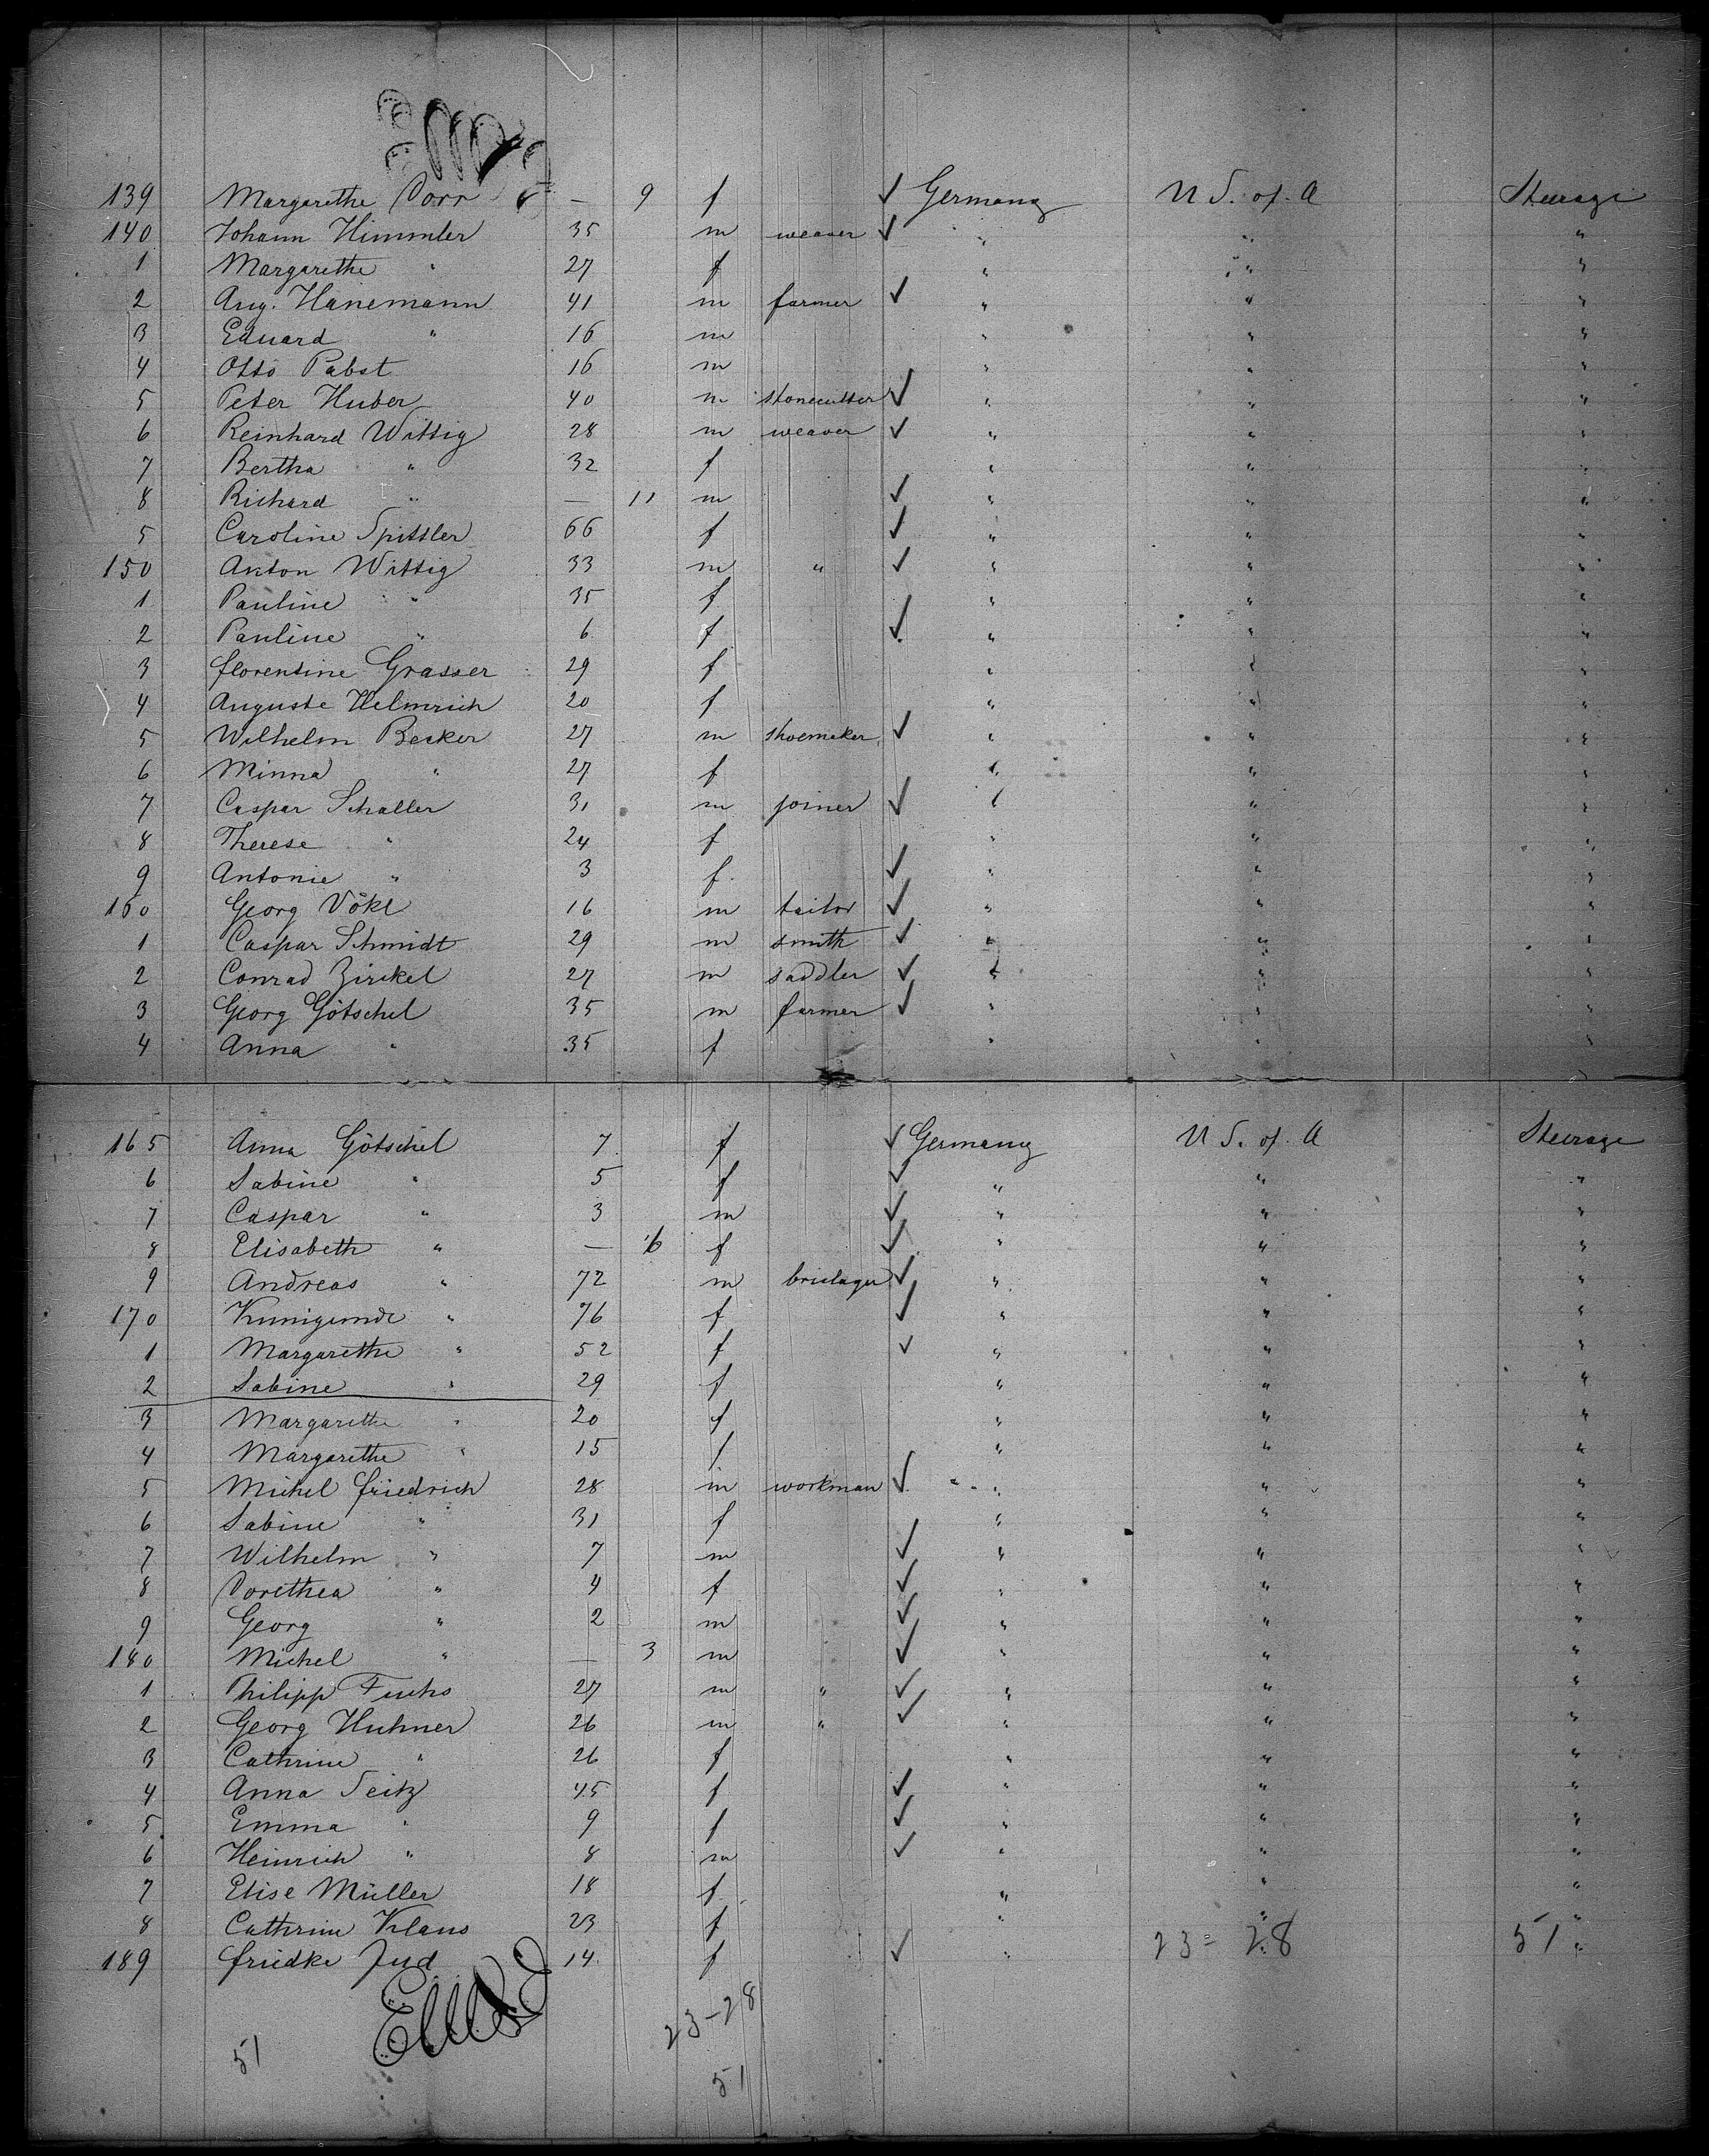 139 Margarethe Dorr — 9 f ✓ Germany U S. of. A Steerage
140 Johann Himmler 35 m weaver ✓ " " "
1 Margarethe " 27 f " " "
2 Aug. Hanemann 41 m farmer ✓ " " "
3 Eduard " 16 m " " "
4 Otto Pabst 16 m " " "
5 Peter Huber 40 m stonecutter ✓ " " "
6 Reinhard Wittig 28 m weaver ✓ " " "
7 Bertha " 32 f " " "
8 Richard " — 11 m ✓ " " "
5 Caroline Spittler 66 f ✓ " " "
150 Anton Wittig 33 m " ✓ " " "
1 Pauline " 35 f " " "
2 Pauline " 6 f ✓ " " "
3 florentine Grasser 29 f " " "
4 Auguste Helmrich 20 f " " "
5 Wilhelm Becker 27 m shoemaker ✓ " " "
6 Minna " 27 f " " "
7 Caspar Schaller 31 m joiner ✓ " " "
8 Therese " 24 f " " "
9 Antonie " 3 f. ✓ " " "
160 Georg Vökl 16 m tailor ✓ " " "
1 Caspar Schmidt 29 m smith ✓ " " "
2 Conrad Zirkel 27 m saddler ✓ " " "
3 Georg Götschel 35 m farmer ✓ " " "
4 Anna " 35 f " " "
165 Anna Götschel 7 f ✓ Germany U S. of. A Steerage
6 Sabine " 5 f ✓ " " "
7 Caspar " 3 m ✓ " " "
8 Elisabeth " — 6 f ✓ " " "
9 Andreas " 72 m ✓ " " "
170 Kunigunde " 76 f ✓ " " "
1 Margarethe " 52 f ✓ " " "
2 Sabine " 29 f " " "
3 Margarethe " 20 f " " "
4 Margarethe " 15 f " " "
5 Michel friedrich 28 m workman ✓ " " "
6 Sabine " 31 f " " "
7 Wilhelm " 7 m ✓ " " "
8 Dorethea " 4 f ✓ " " "
9 Georg " 2 m ✓ " " "
180 Michel " — 3 m ✓ " " "
1 Philipp Fuchs 27 m " ✓ " " "
2 Georg Huhner 26 m " ✓ " " "
3 Cathrine " 26 f " " "
4 Anna Seitz 45 f ✓ " " "
5 Emma " 9 f ✓ " " "
6 Heinrich " 8 m ✓ " " "
7 Elise Müller 18 f " " "
8 Cathrine Klaus 23 f " " "
189 friedke Jud 14 f ✓ " 23 = 28 51 "
23-28
51
51